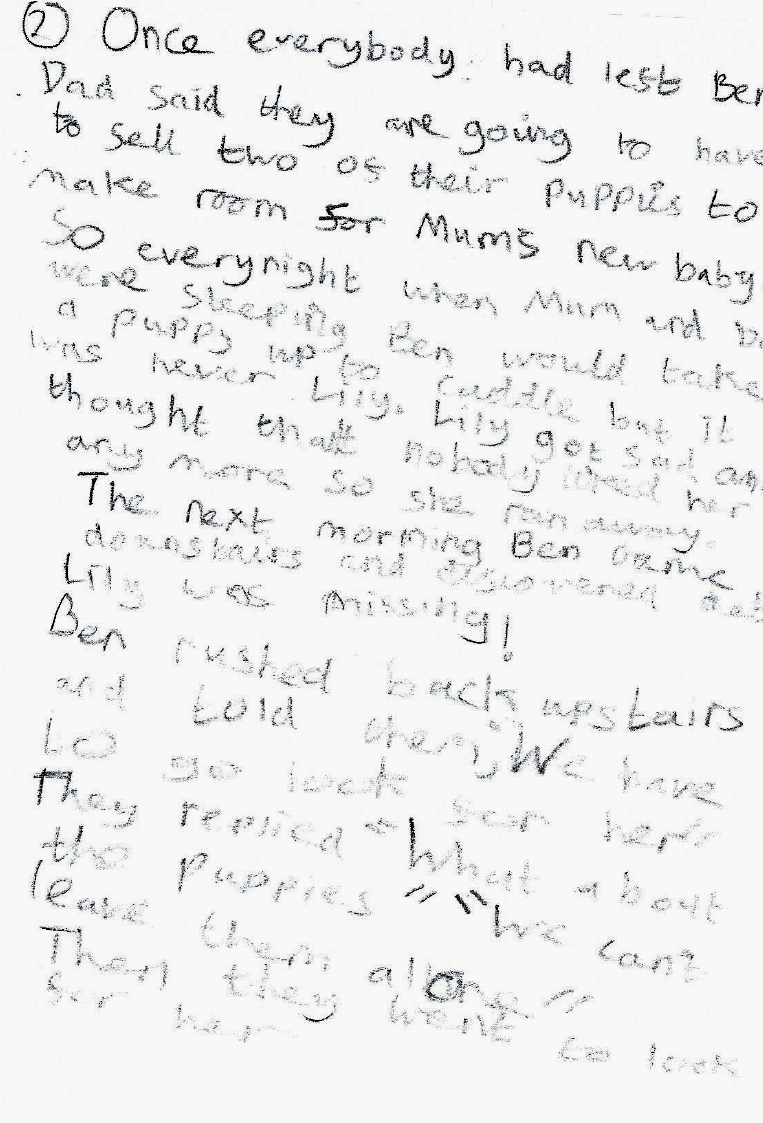 ② Once everybody had lest Ben
Dad said they are going to have
to sell two os their puppies to
make room sor Mums new baby
So everynight when Mum and Da
were sleeping Ben would take
a puppy up to cuddle but it
was never Lily. Lily got sad and
thought that nobody loved her
any more so she ran away.
The next morning Ben came
downstairs and discovered
Lily was missing!
Ben rushed back upstairs
and told them, "We have
to go look sor her"
They replied "What about
the puppies" "We can't
leave them alone"
Then they went to look
sor her